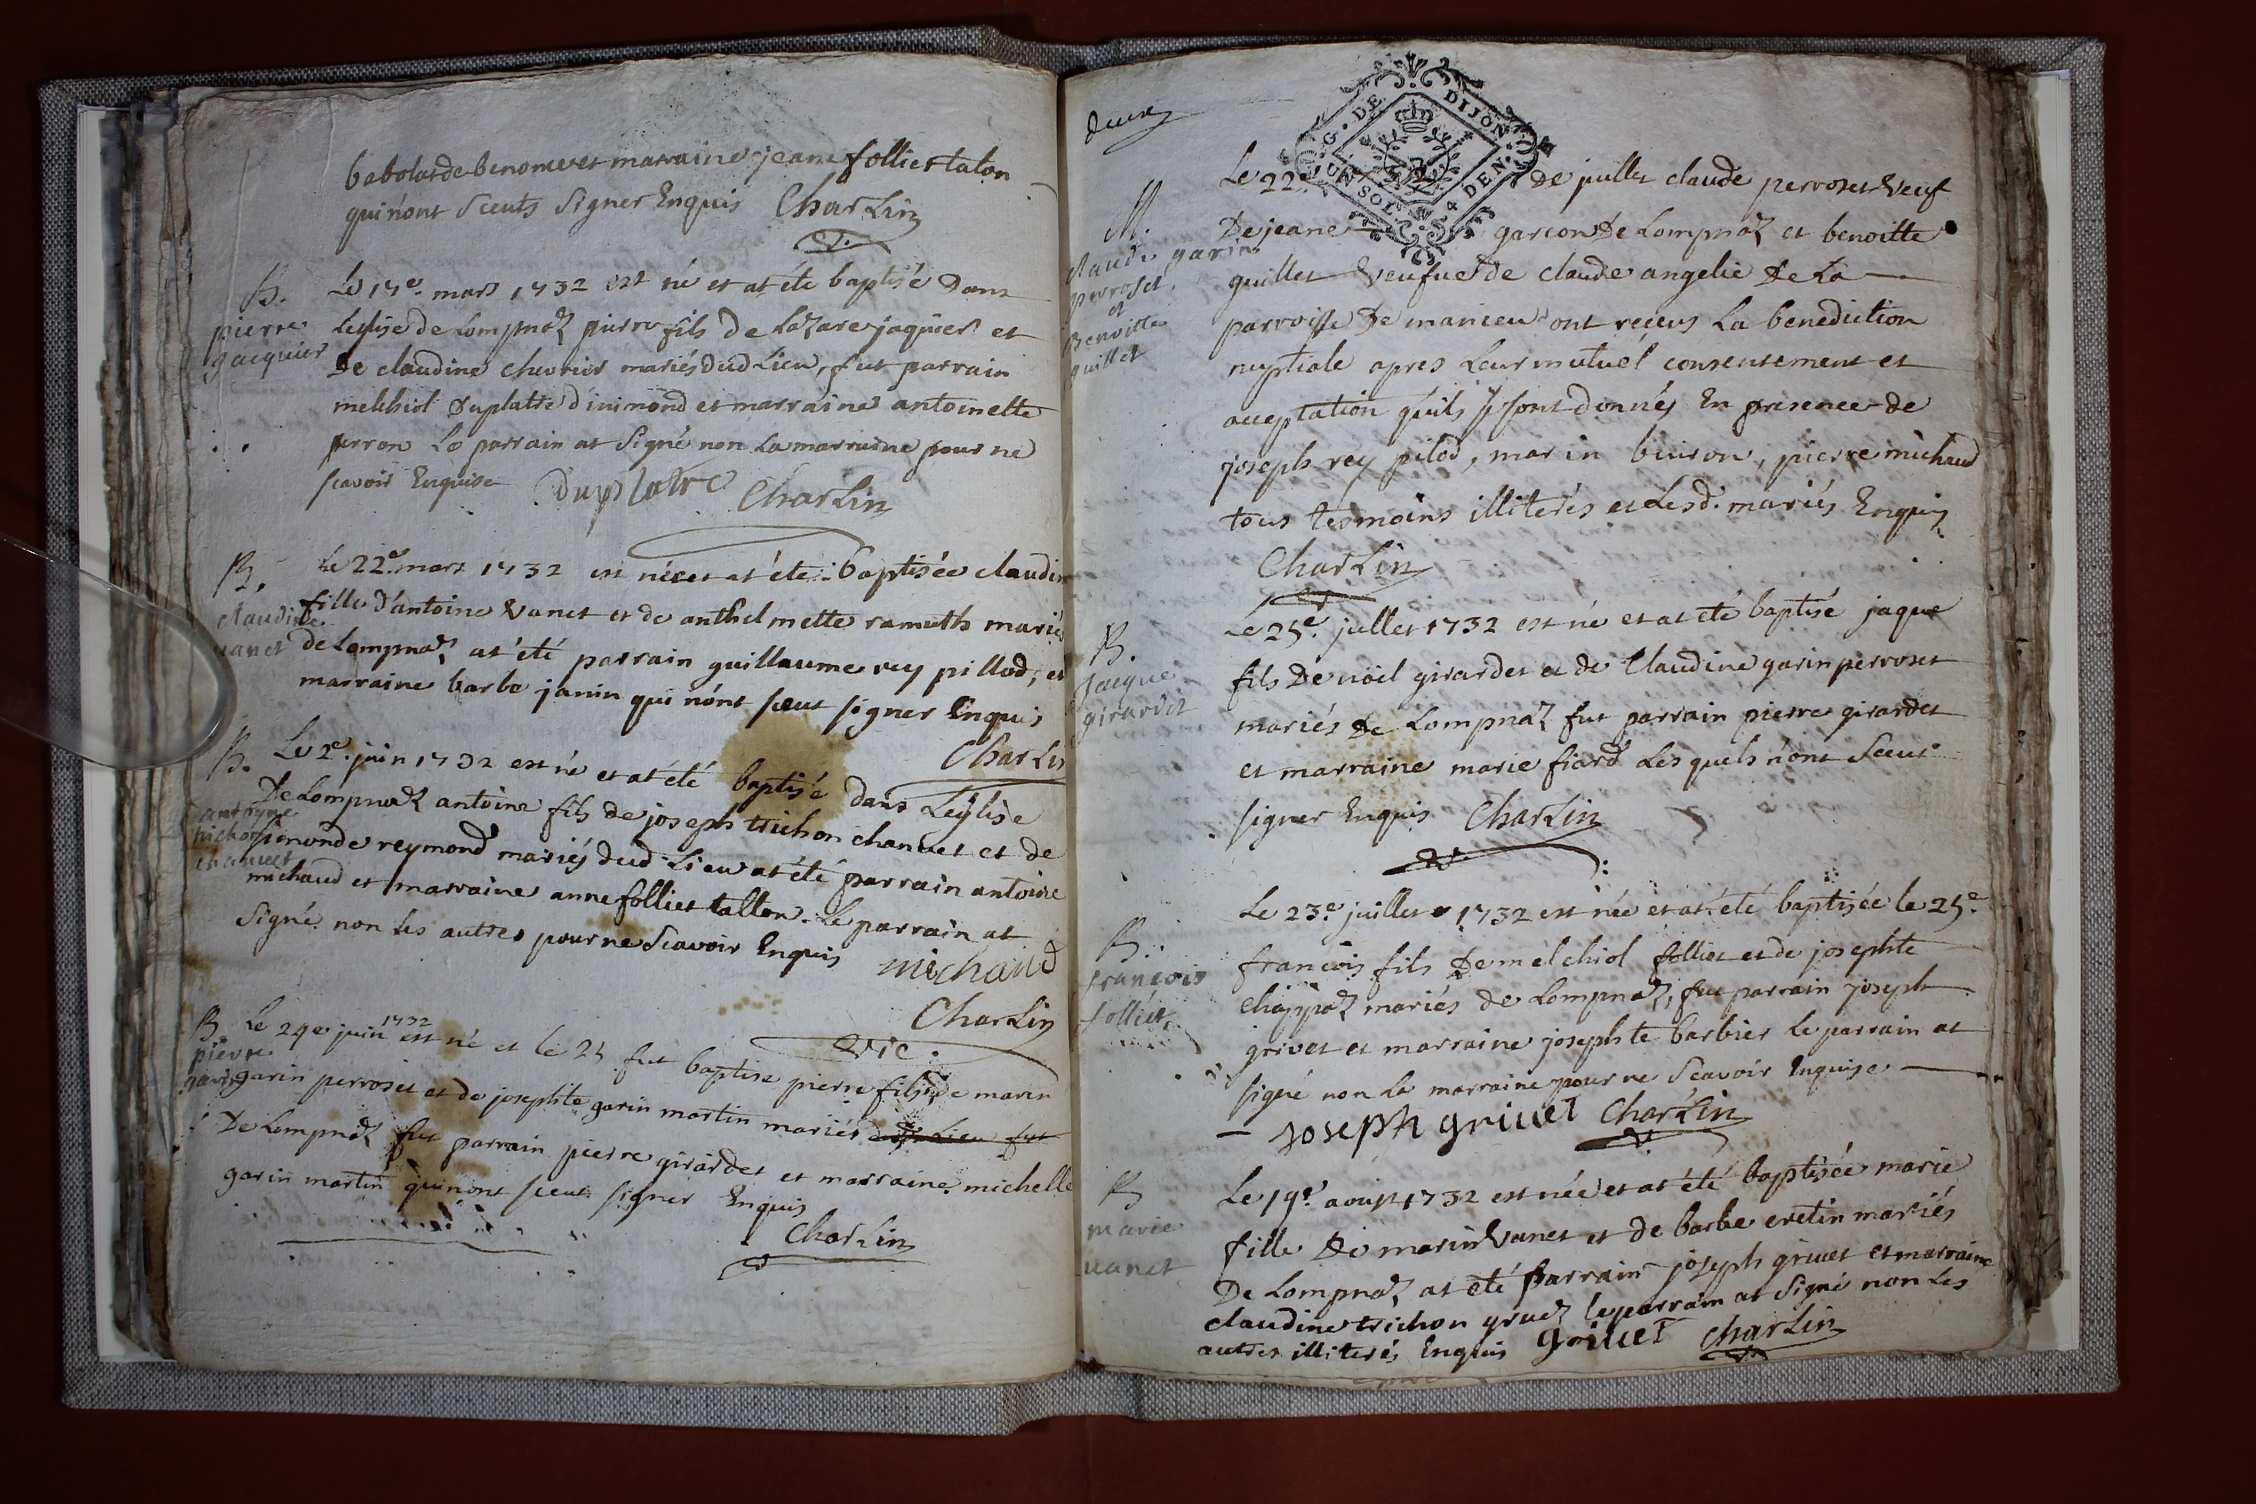 babolat de benonce et marraine jeane follier talon
qui n'ont sceuts signer Enquis Charlin
B.
pierre
jacquier
Le 17e. mars 1732 est né et at été baptisé dans
Leglise de Lompnaz pierre fils de Lazare jaquier et
De claudine chevrier mariés dud Lieu, fut parrain
melchiol Duplatre d'inimond et marraine antoinette
perron Le parrain at signé non La marraine pour ne
scavoir Enquise Duplatre Charlin
B.
claudine
vanet
Le 22e. mars 1732 est néeet at été baptisée claudine
fille d'antoine Vanet et de anthelmette ramuth mariés
de Lompnaz at été parrain guillaume rey pillod, et
marraine barbe janin qui n'ont sceut signer Enquis
Charlin
B.
antoyne
trichon
chanuet
Le 2e. juin 1732 est né et at été baptisé dans Leglise
De Lompnaz antoine fils de joseph trichon chanuet et de
reymond mariés dud Lieu at été parrain antoine
michaud et marraine anne follier tallon. Le parrain at
signé non Les autres pour ne scavoir Enquis michaud
Charlin
vic.
B
pierre
garin
Le 24e juin 1732 est né et le 25 fut baptise pierre fils de marin
garin perroset et de josephte garin martin mariés dud Lieu fut
De Lompnaz fut parrain pierre girardet et marraine michelle
garin martin qui nont sceut signer Enquis
Charlin
deux
G. DE DIJON
UN SOL 4 DEN.
M.
claude garin
perroset
et
Benoitte
guillet
Le 22 De juillet claude perroset Veuf
De jeane garcon De Lompnaz et benoitte
guillet Veufue de claude angelie De La
parroisse De marieu ont receus La benediction
nuptiale apres Leur mutuél consentement et
acceptation qu'ils se sont donnés En presence de
joseph rey pilod, marin buiron, pierre michaud
tous tesmoins illiterés et Lesd. mariés Enquis
Charlin
B.
Jacque
girardet
Le 25e. juillet 1732 est né et at eté baptisé jaque
fils De nöel girardet et de Claudine garin perroset
mariés De Lompnaz fut parrain pierre girardet
et marraine marie fiard Lesquels n'ont Sceut
signer Enquis Charlin
B.
francois
folliet
Le 23e. juillet 1732 est née et at été baptisée le 25e.
francois fils De melchiol follier et de josephte
chappaz mariés de Lompnaz, fut parrain joseph
grivet et marraine josephte barbier Le parrain at
signé non La marraine pour ne Scavoir Enquise
joseph griuet Charlin
B
marie
vanet
Le 19e. aoust 1732 est née et at été baptisée marie
fille De marin Vanet et de barbe cretin mariés
De Lompnaz at eté parrain joseph griuet et marraine
claudine trichon gruez le parrain at signé non Les
autres illiterés Enquis griuet Charlin